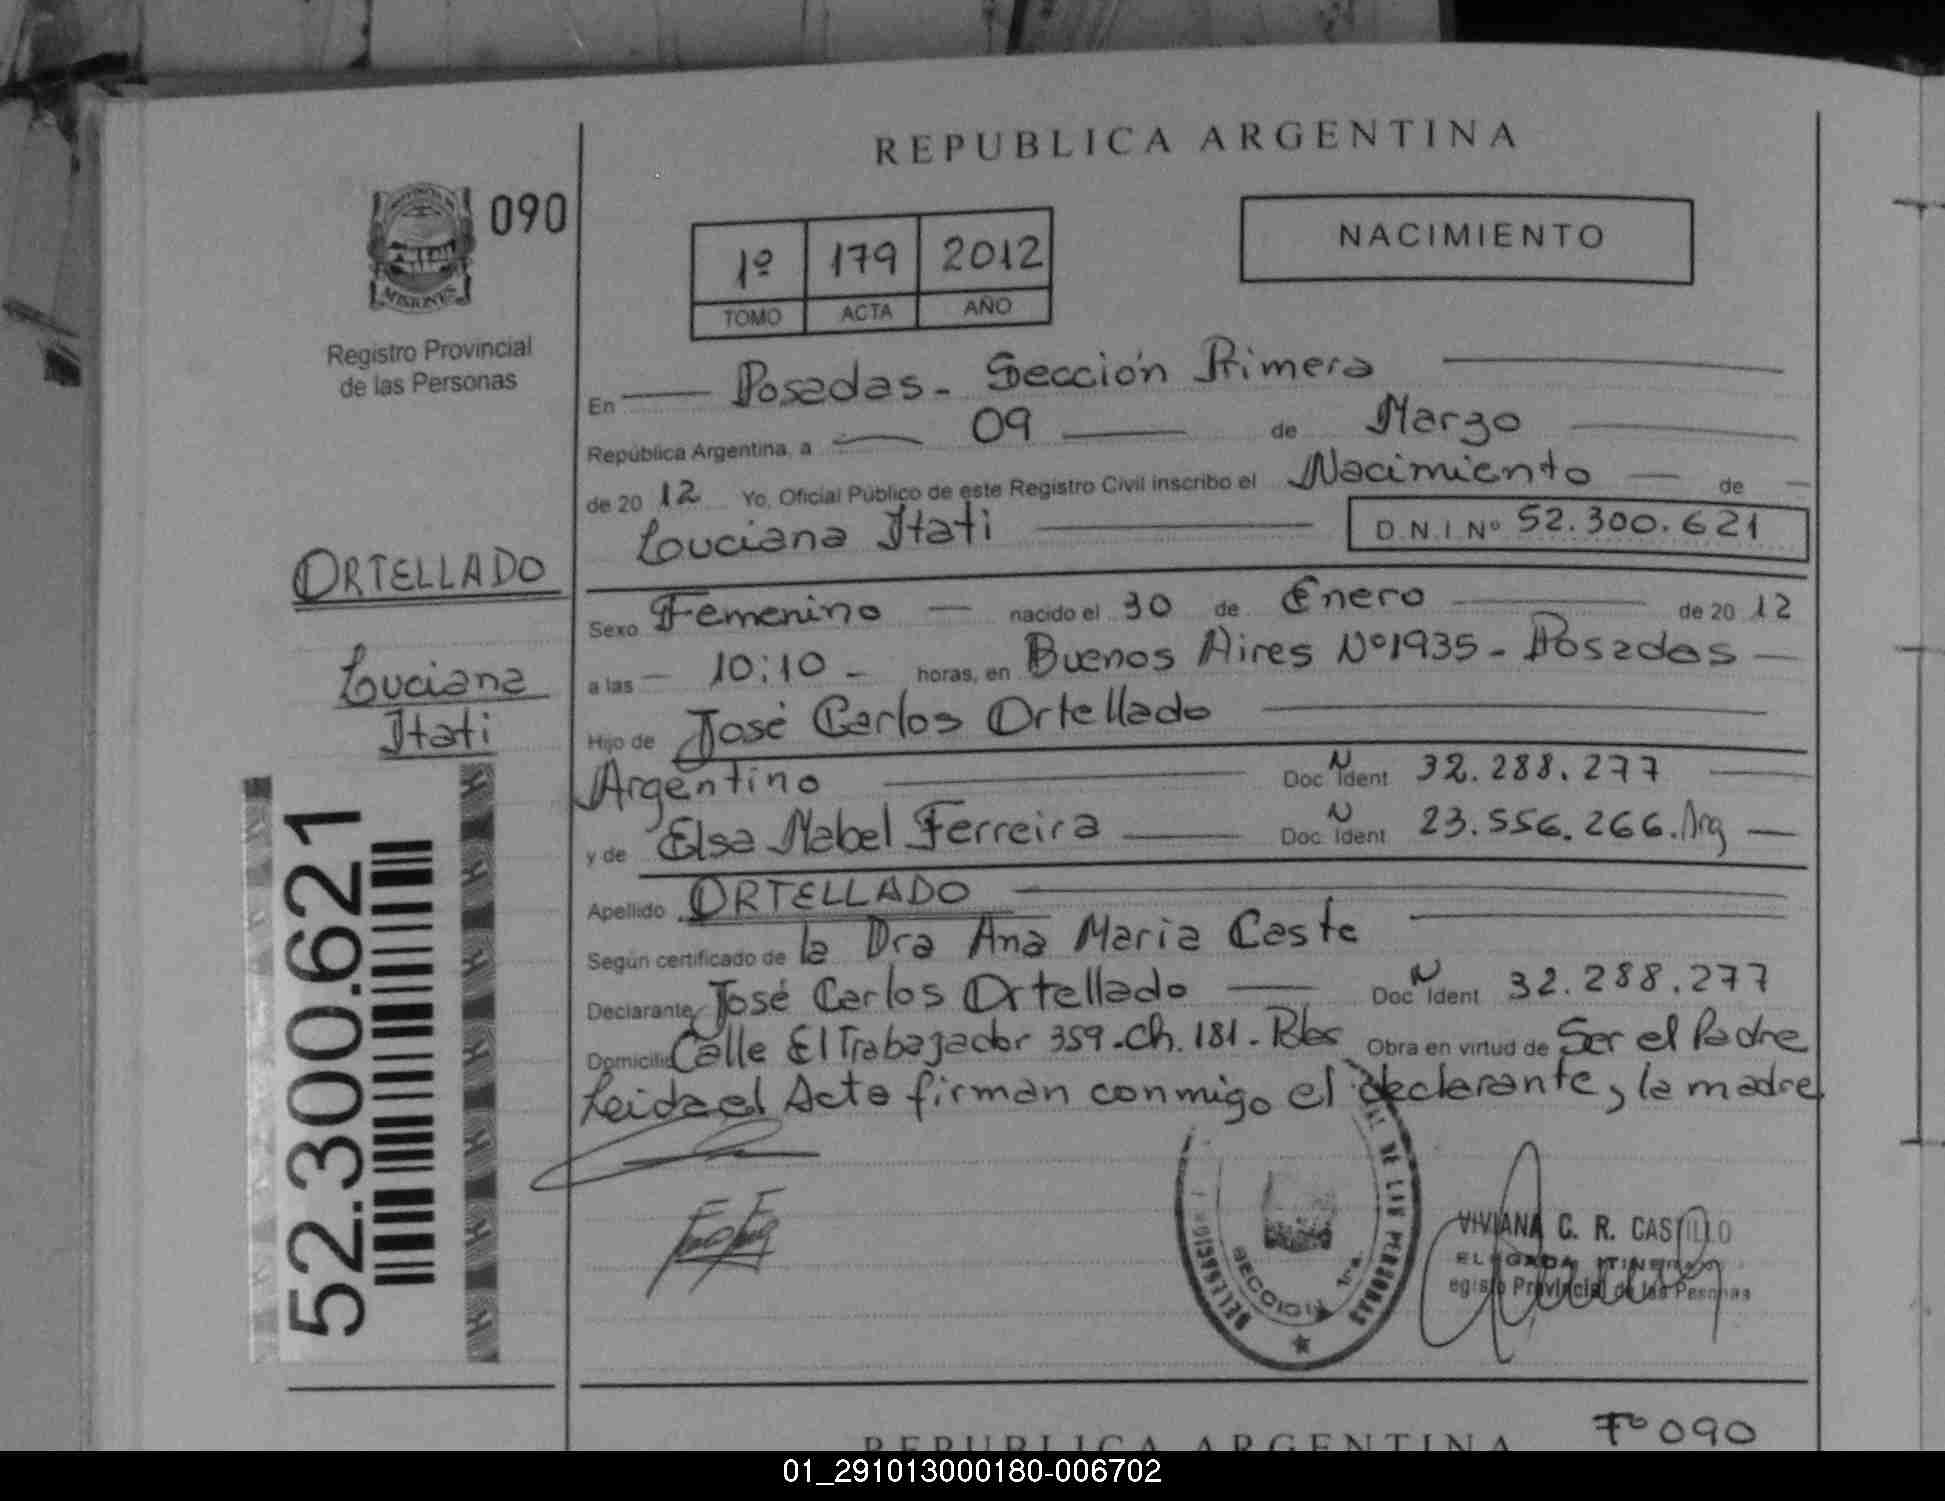 REPUBLICA ARGENTINA
090
MISIONES
Registro Provincial
de las Personas
1º 179 2012
TOMO ACTA AÑO
NACIMIENTO
En Posadas - Sección Primera
República Argentina, a 09 de Marzo
de 20 12 Yo, Oficial Público de este Registro Civil inscribo el Nacimiento de
Luciana Itati D.N.I Nº 52.300.621
ORTELLADO
Luciana
Itati
52.300.621
Sexo Femenino nacido el 30 de Enero de 20 12
a las 10:10 - horas, en Buenos Aires Nº 1935 - Posadas
Hijo de José Carlos Ortellado
Argentino Doc N Ident 32.288.277
y de Elsa Mabel Ferreira Doc. N Ident 23.556.266. Arg
Apellido ORTELLADO
Según certificado de la Dra Ana Maria Caste
Declarante José Carlos Ortellado Doc N Ident 32.288.277
Domicilio Calle El Trabajador 359. Ch. 181. Obra en virtud de Ser el Padre
Leida el Acta firman conmigo el declarante, la madre
DE LAS PERSONAS
SECCION 1ra.
VIVIANA C. R. CASTILLO
Registro Provincial de las Personas
Fº 090
REPUBLICA ARGENTINA
01_291013000180-006702